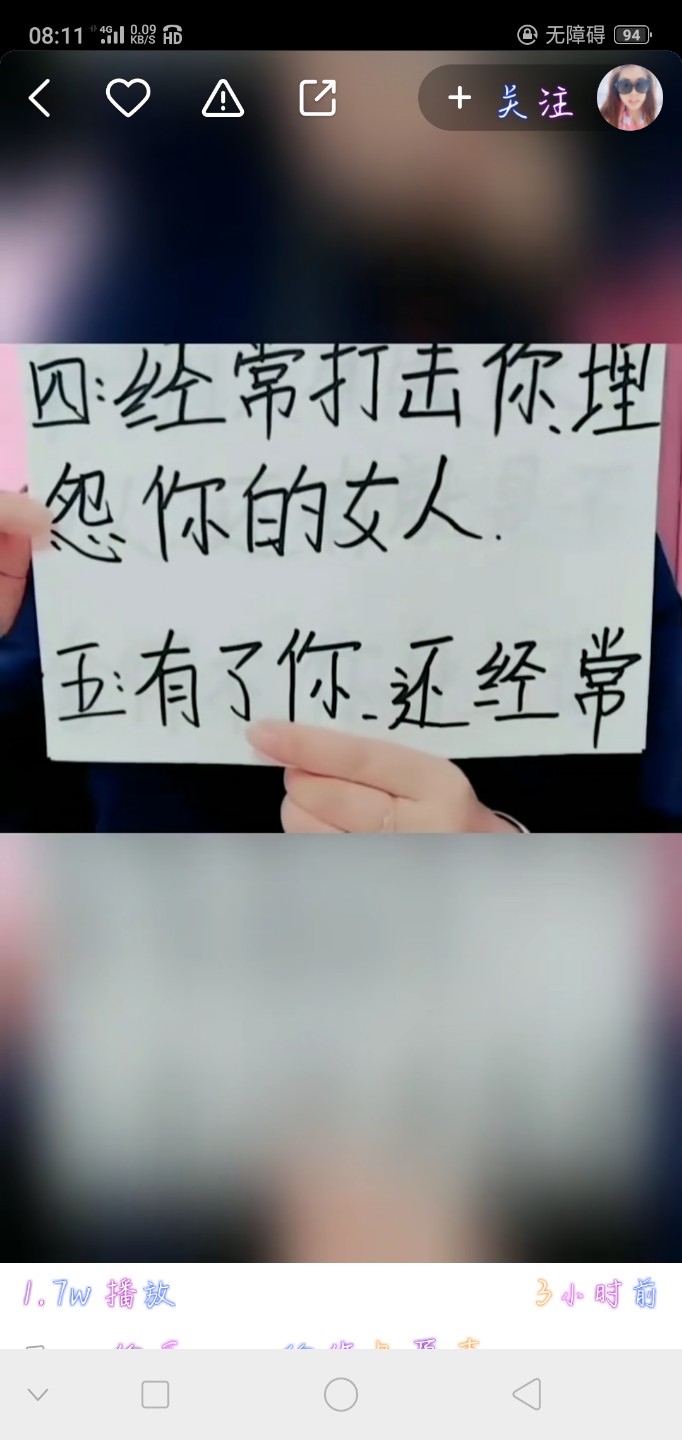 08:11 4G 0.09 KB/S HD 无障碍 94
+ 关注
四:经常打击你、埋
怨你的女人.
五:有了你-还经常
1.7w 播放 3小时前